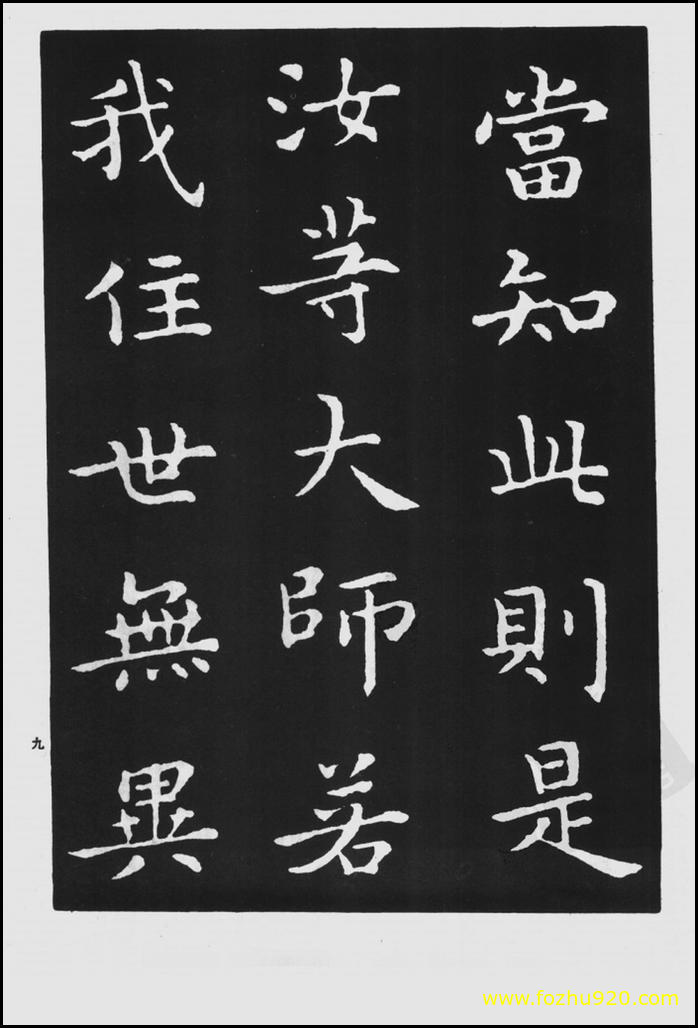 當知此則是
汝等大師若
我住世無異
九
www.fozhu920.com